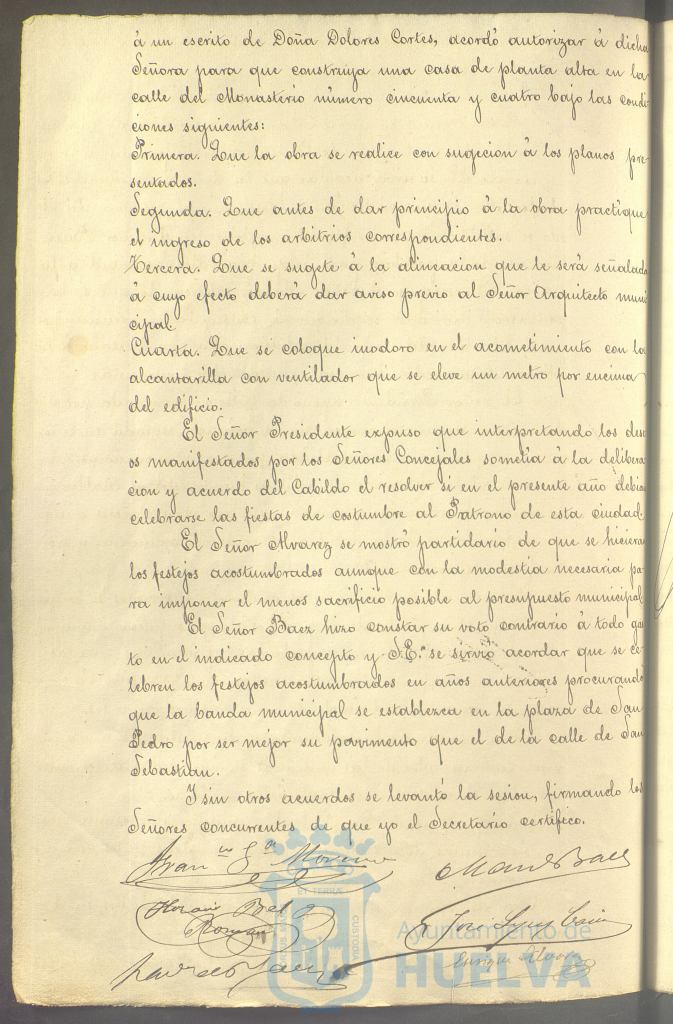 á un escrito de Doña Dolores Cortes, acordó autorizar á dicha
Señora para que construya una casa de planta alta en la
calle del Monasterio número cincuenta y cuatro bajo las condi-
ciones siguientes:
Primera. Que la obra se realice con sugecion á los planos pre-
sentados.
Segunda. Que antes de dar principio á la obra practique
el ingreso de los arbitrios correspondientes.
Tercera. Que se sugete á la alineacion que le será señalada
á cuyo efecto deberá dar aviso previo al Señor Arquitecto muni
cipal.
Cuarta. Que se coloque inodoro en el acometimiento con la
alcantarilla con ventilador que se eleve un metro por encima
del edificio.
El Señor Presidente expuso que interpretando los dese
os manifestados por los Señores Concejales sometia á la delibera
cion y acuerdo del Cabildo el resolver si en el presente año debia
celebrarse las fiestas de costumbre al Patrono de esta ciudad.
El Señor Alvarez se mostró partidario de que se hiciera
los festejos acostumbrados aunque con la modestia necesaria pa-
ra imponer el menos sacrificio posible al presupuesto municipal
El Señor Baez hizo constar su voto contrario á todo gas
to en el indicado concepto y S.E.ª se sirvió acordar que se ce-
lebren los festejos acostumbrados en años anteriores procurando
que la banda municipal se establezca en la plaza de San
Pedro por ser mejor su pavimento que el de la calle de San
Sebastian.
Y sin otros acuerdos se levantó la sesion, firmando los
Señores concurrentes de que yo el Secretario certifico.
Moreno
Baez
José
Enrique
Ayuntamiento de
HUELVA
CUSTODIA